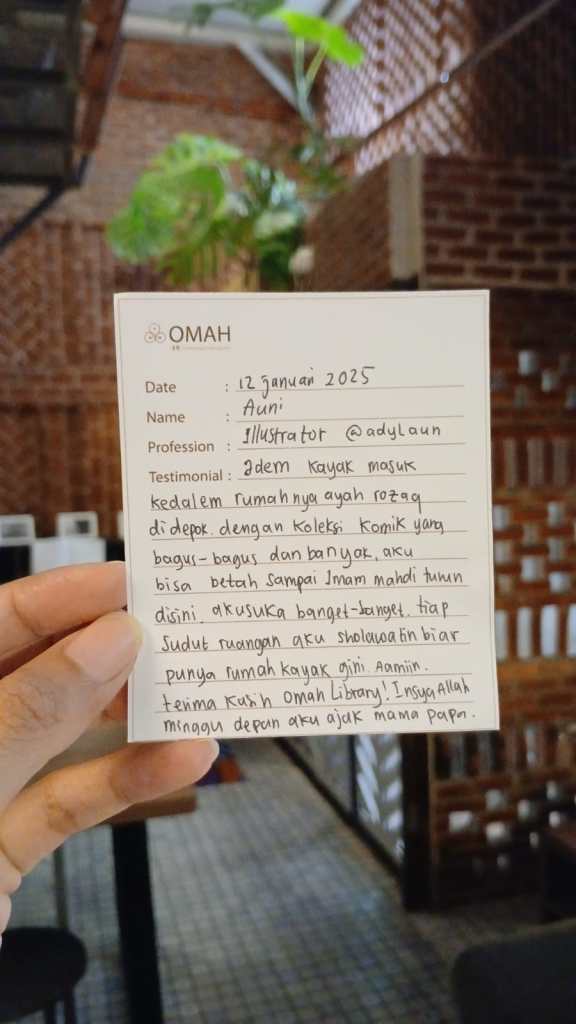 OMAH
Date : 12 Januari 2025
Name : Auni
Profession : Illustrator @adylaun
Testimonial : Adem kayak masuk
kedalem rumahnya ayah rozaq
didepok. dengan koleksi komik yang
bagus-bagus dan banyak, aku
bisa betah sampai Imam mahdi turun
disini. akusuka banget-banget. tiap
sudut ruangan aku sholawatin biar
punya rumah kayak gini. Aamiin.
terima kasih Omah Library! InsyaAllah
minggu depan aku ajak mama papa.